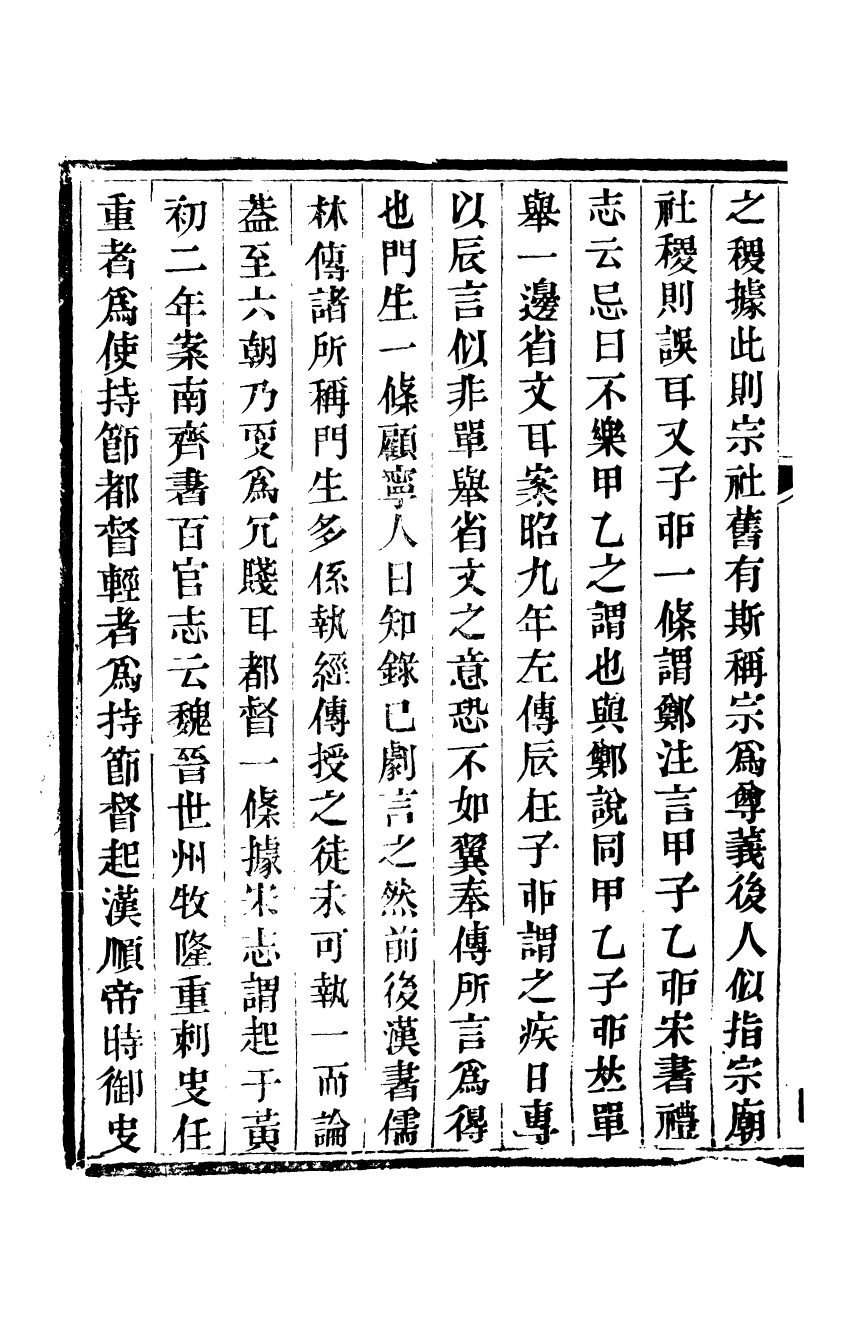 之稷據此則宗社舊有斯稱宗爲尊義後人似指宗廟
社稷則誤耳又子丣一條謂鄭注言甲子乙丣宋書禮
志云忌日不樂甲乙之謂也與鄭說同甲乙子丣竝單
舉一邊省文耳案昭九年左傳辰在子丣謂之疾日專
以辰言似非單舉省文之意恐不如翼奉傳所言爲得
也門生一條顧寧人日知錄已劇言之然前後漢書儒
林傳諸所稱門生多係執經傳授之徒未可執一而論
葢至六朝乃更爲冗賤耳都督一條據宋志謂起于黃
初二年案南齊書百官志云魏晉世州牧隆重刺史任
重者爲使持節都督輕者爲持節督起漢順帝時御史